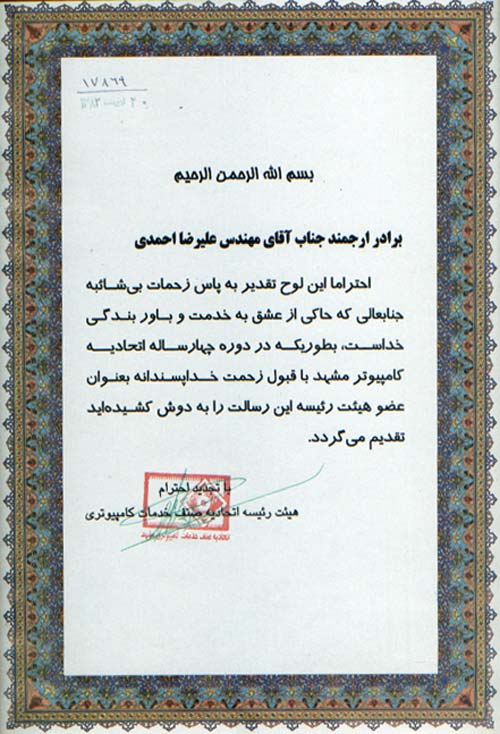 ۱۷۸۶۹
بسم الله الرحمن الرحیم
برادر ارجمند جناب آقای مهندس علیرضا احمدی
احتراما این لوح تقدیر به پاس زحمات بی‌شائبه
جنابعالی که حاکی از عشق به خدمت و باور بندگی
خداست، بطوریکه در دوره چهارساله اتحادیه
کامپیوتر مشهد با قبول زحمت خداپسندانه بعنوان
عضو هیئت رئیسه این رسالت را به دوش کشیده‌اید
تقدیم می‌گردد.
با تجدید احترام
هیئت رئیسه اتحادیه صنف خدمات کامپیوتری
اتحادیه صنف خدمات کامپیوتر مشهد